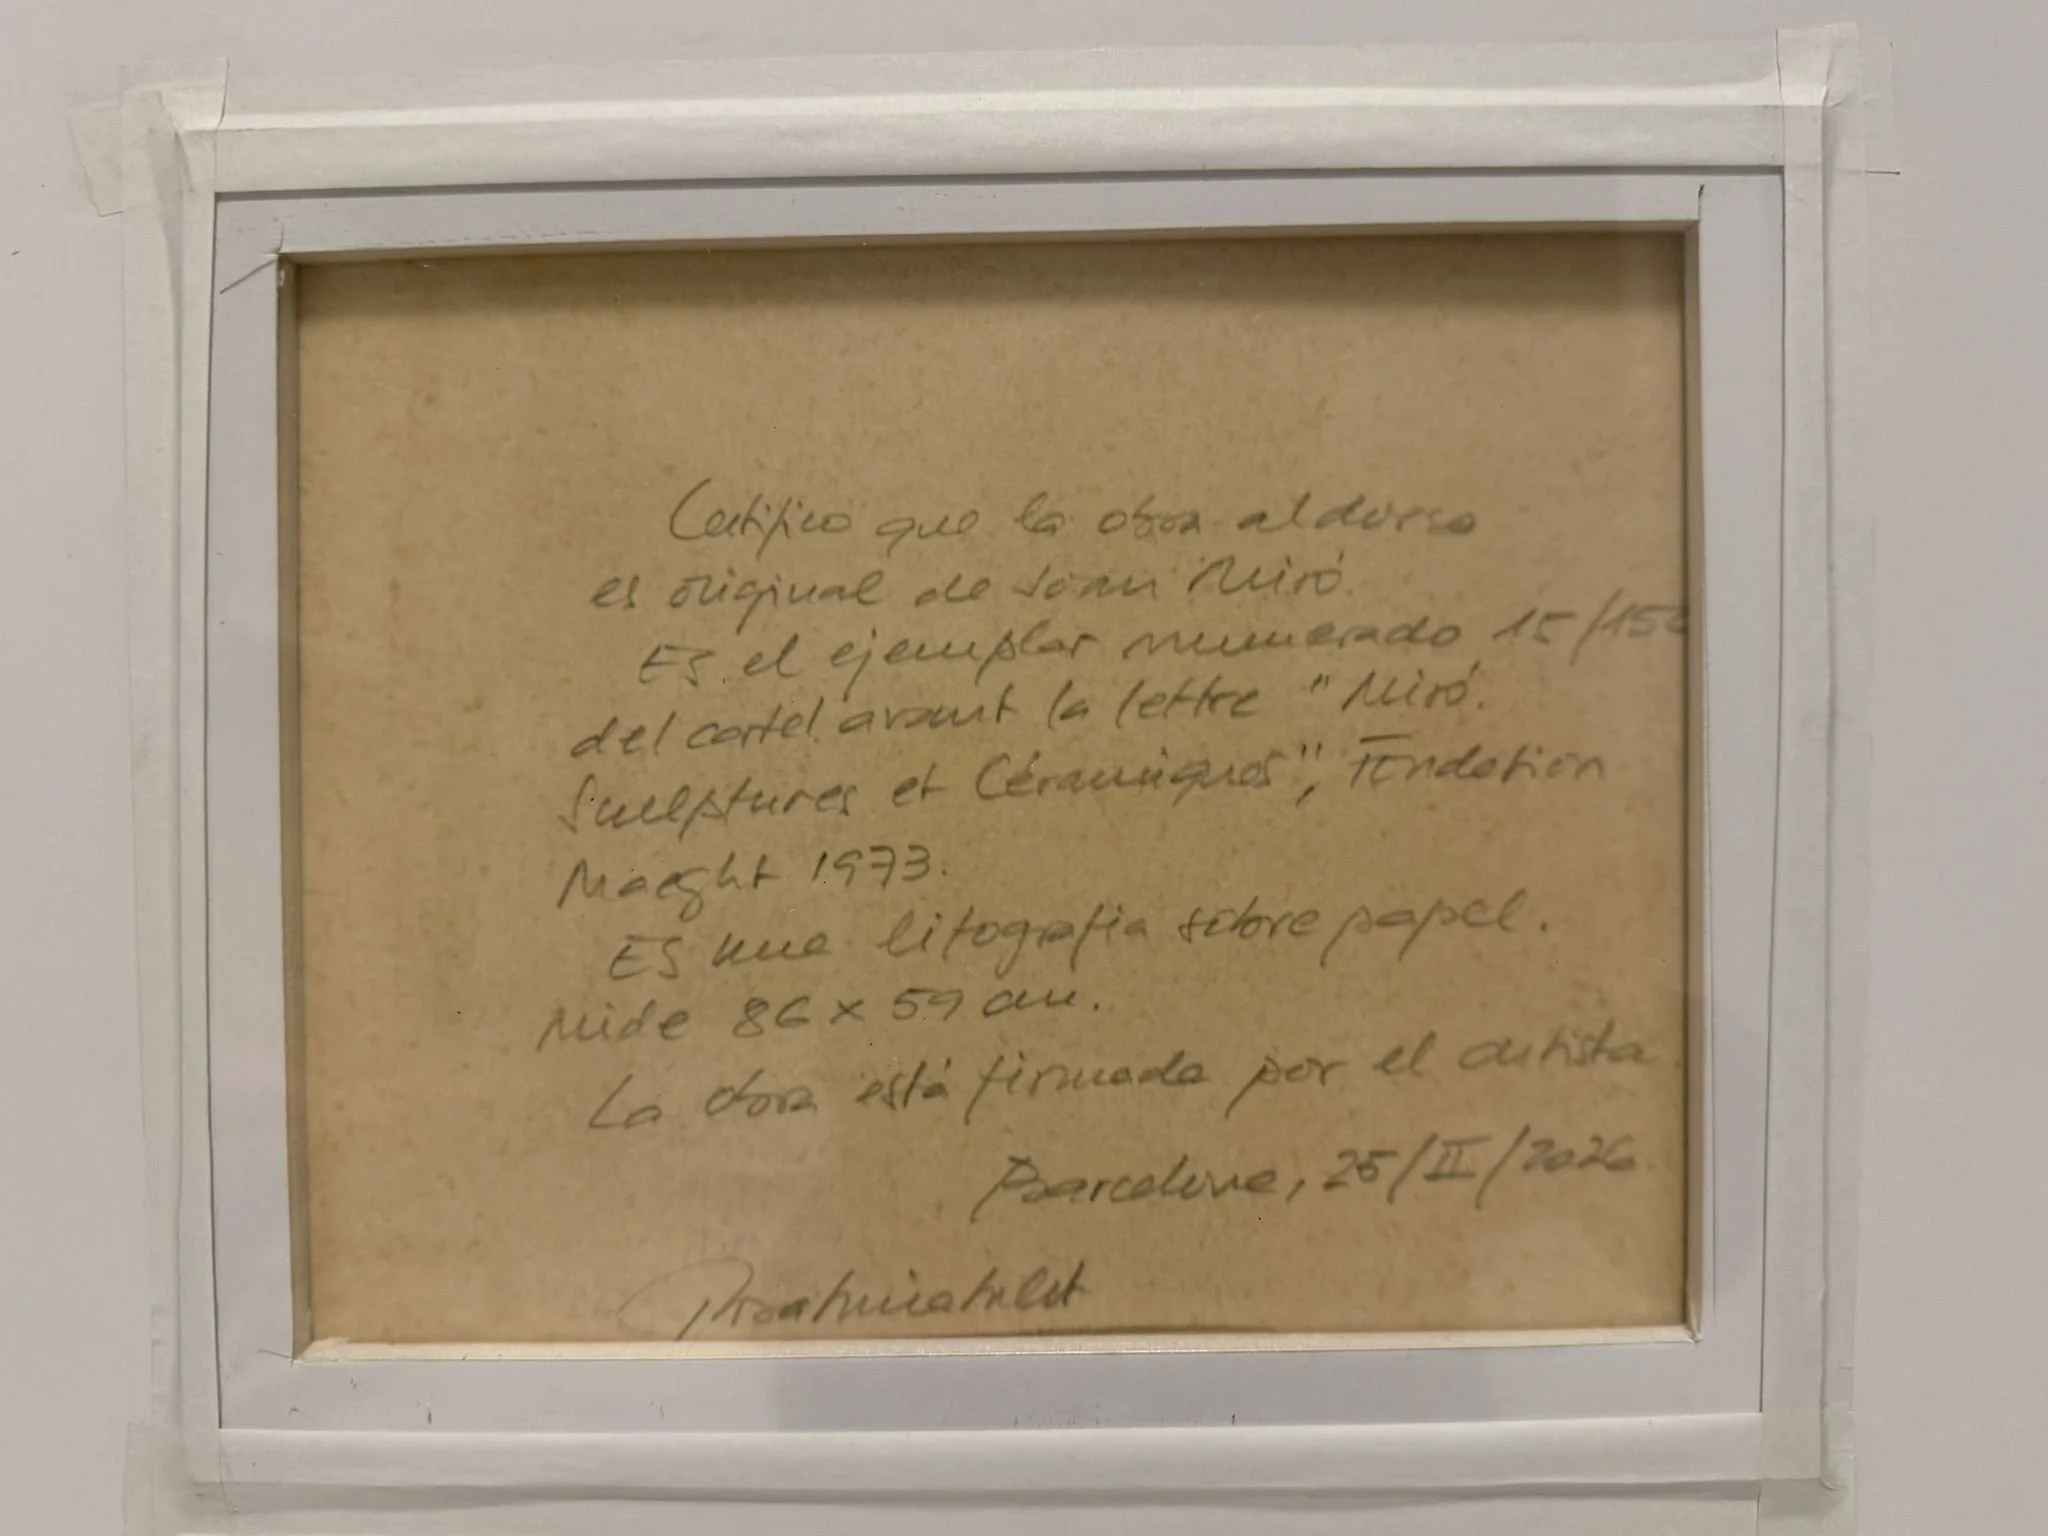 Certifico que la obra al dorso
es original de Joan Miró.
Es el ejemplar numerado 15/150
del cartel avant la lettre "Miró.
Sculptures et Céramiques", Fondation
Maeght 1973.
Es una litografia sobre papel.
Mide 86 x 59 cm.
La obra está firmada por el artista
Barcelona, 25/II/2026